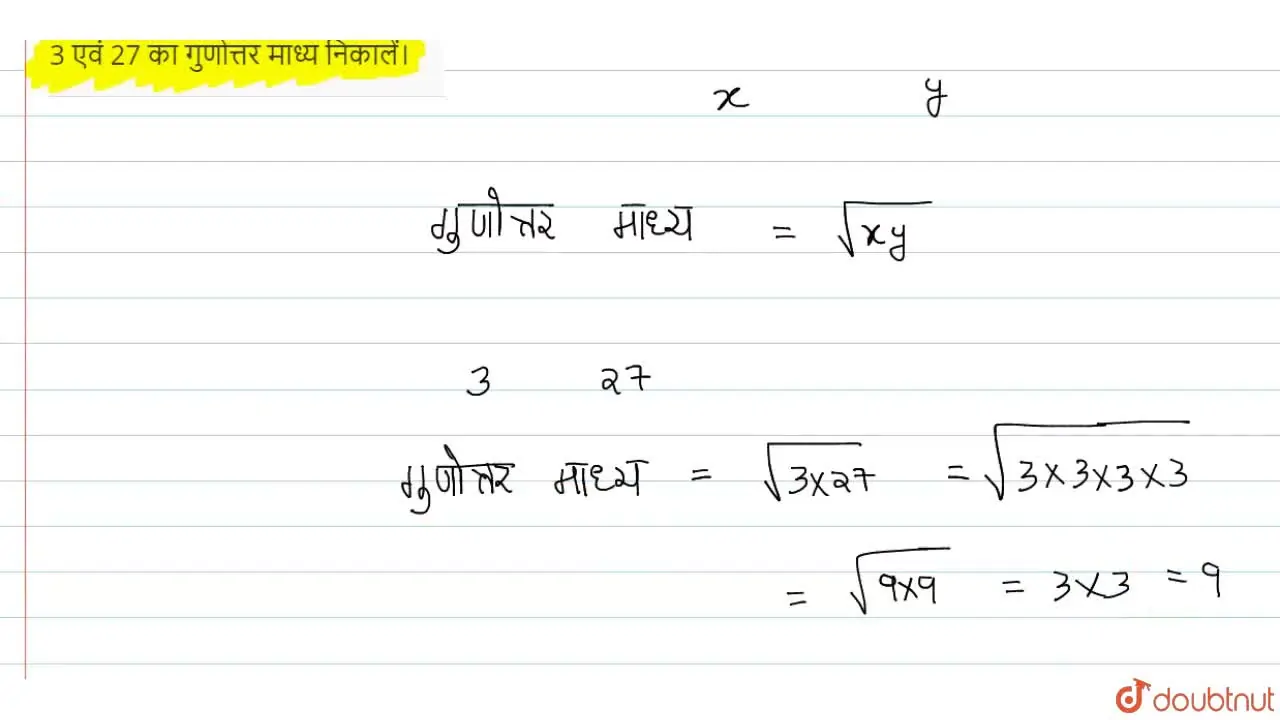 3 एवं 27 का गुणोत्तर माध्य निकालें।
x y
गुणोत्तर माध्य = √xy
3 27
गुणोत्तर माध्य = √3×27 = √3×3×3×3
= √9×9 = 3×3 = 9
doubtnut